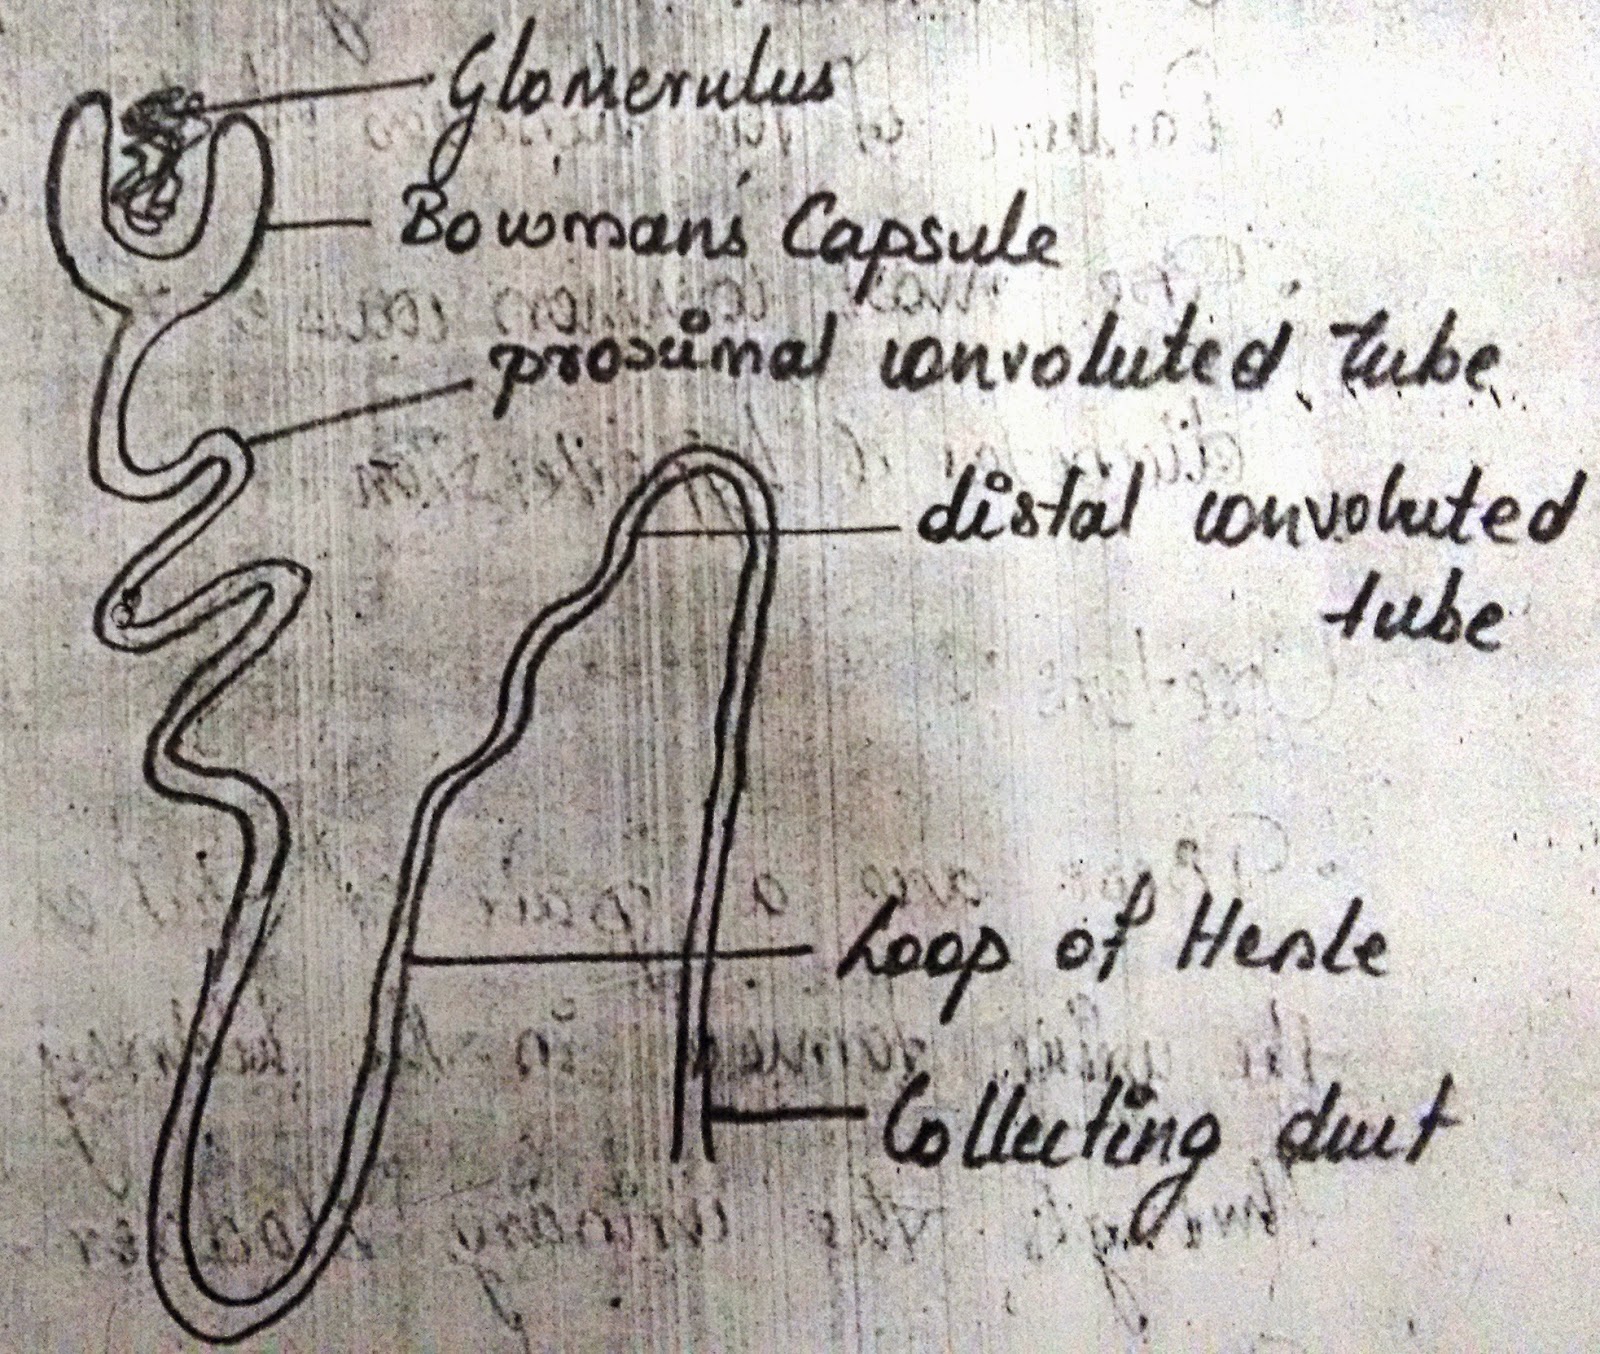 Glomerulus
Bowman's Capsule
proximal convoluted tube
distal convoluted
tube
Loop of Henle
Collecting duct